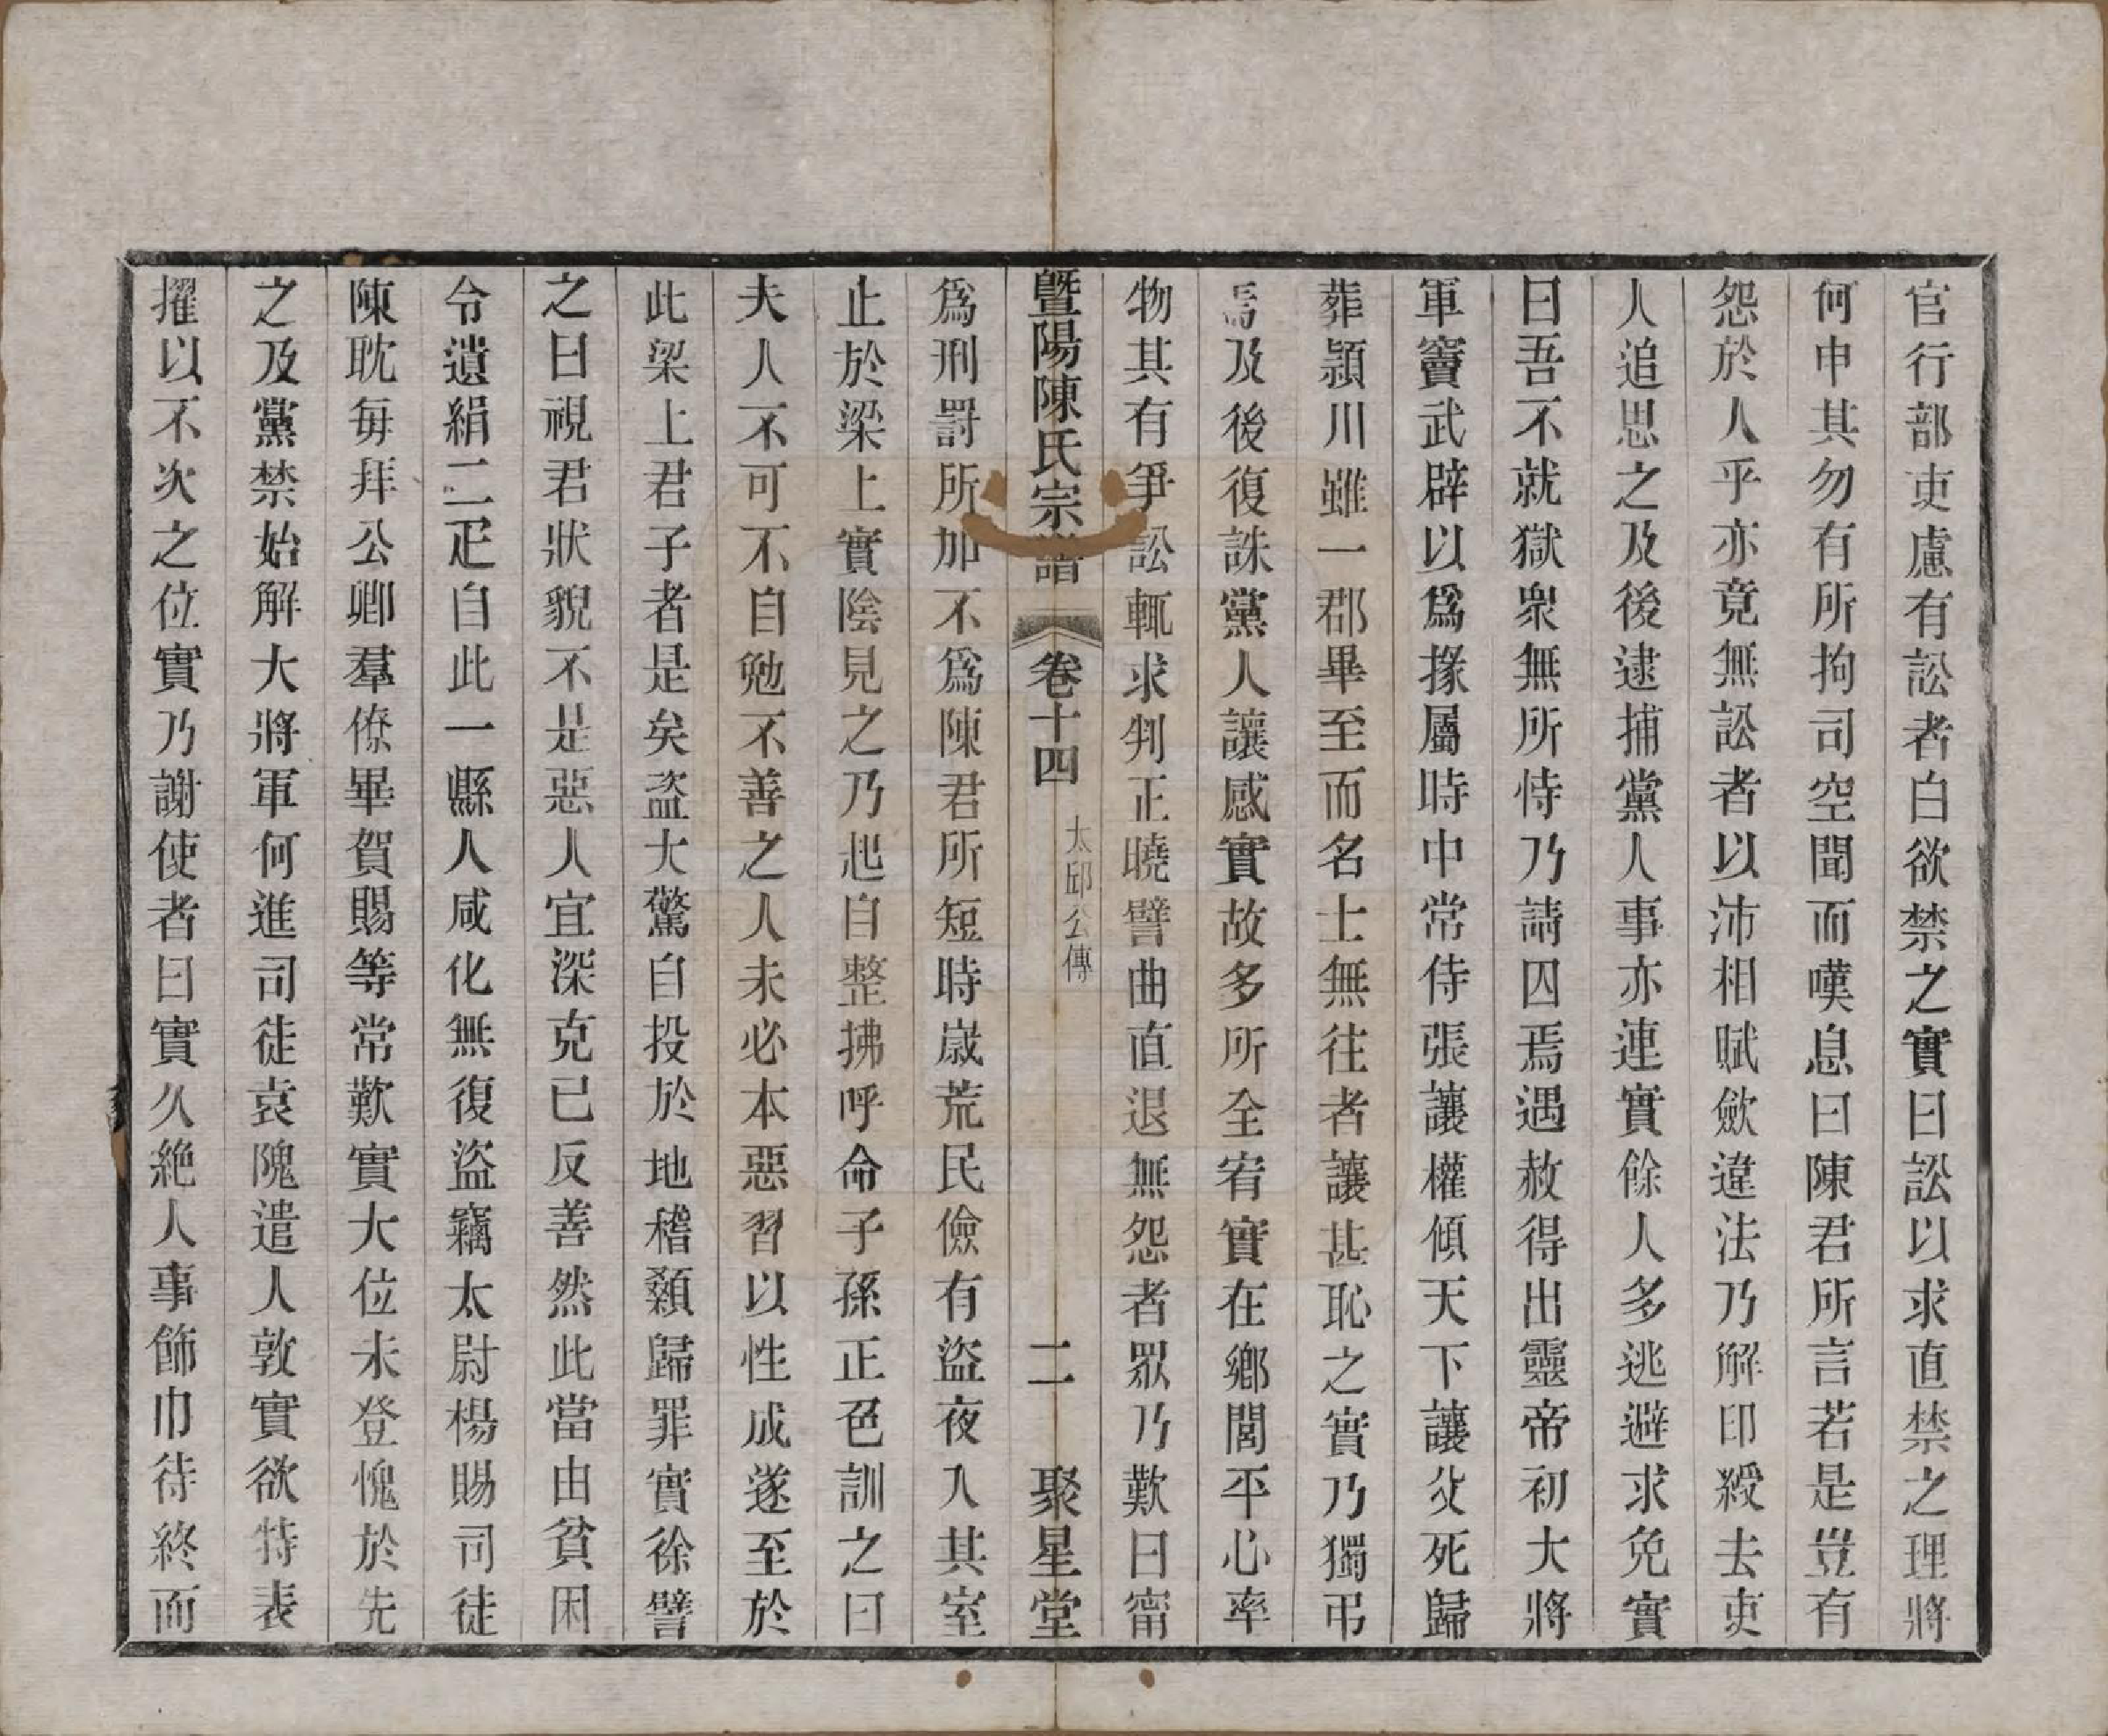 官行部吏慮有訟者白欲禁之實曰訟以求直禁之理將
何申其勿有所拘司空聞而嘆息曰陳君所言若是豈有
怨於人乎亦竟無訟者以沛相賦歛違法乃解印綬去吏
人追思之及後逮捕黨人事亦連實餘人多逃避求免實
曰吾不就獄衆無所恃乃請囚焉遇赦得出靈帝初大將
軍竇武辟以爲掾屬時中常侍張讓權傾天下讓父死歸
葬潁川雖一郡畢至而名士無往者讓甚恥之實乃獨弔
焉及後復誅黨人讓感實故多所全宥實在鄉閭平心率
物其有爭訟輒求判正曉譬曲直退無怨者眾乃歎曰甯
暨陽陳氏宗譜 卷十四 太邱公傳 二 聚星堂
爲刑罸所加不爲陳君所短時歲荒民儉有盜夜入其室
止於梁上實陰見之乃起自整拂呼命子孫正色訓之曰
夫人不可不自勉不善之人未必本惡習以性成遂至於
此梁上君子者是矣盗大驚自投於地稽顙歸罪實徐譬
之曰視君狀貌不是惡人宜深克已反善然此當由貧困
令遺絹二疋自此一縣人咸化無復盜竊太尉楊賜司徒
陳耽每拜公卿羣僚畢賀賜等常歎實大位未登愧於先
之及黨禁始解大將軍何進司徒袁隗遣人敦實欲特表
擢以不次之位實乃謝使者曰實久絶人事飾巾待終而